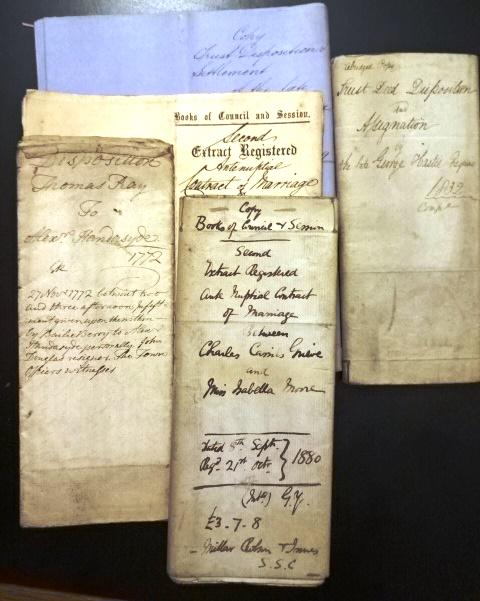 Copy
Trust Disposition &
Settlement
of the late
Books of Council and Session.
Second
Extract Registered
Antenuptial
Contract of Marriage
Abridged Copy
Trust Deed Disposition
and
Assignation
by
the late George
1832
Disposition
Thomas Ray
To
Alexr. Handasyde
1772
27 Nov 1772 betwixt two
and three afternoon
personally John
resigned The Town
Officers witnesses
Copy
Books of Council & Session
Second
Extract Registered
Ante Nuptial Contract
of Marriage
Between
Charles Cairns Grieve
and
Miss Isabella Moore
Dated 8th Septr.
Regd. 21st Octr. } 1880
(Intd.) G.Y.
£3-7-8
Millar Robson & Innes
S.S.C